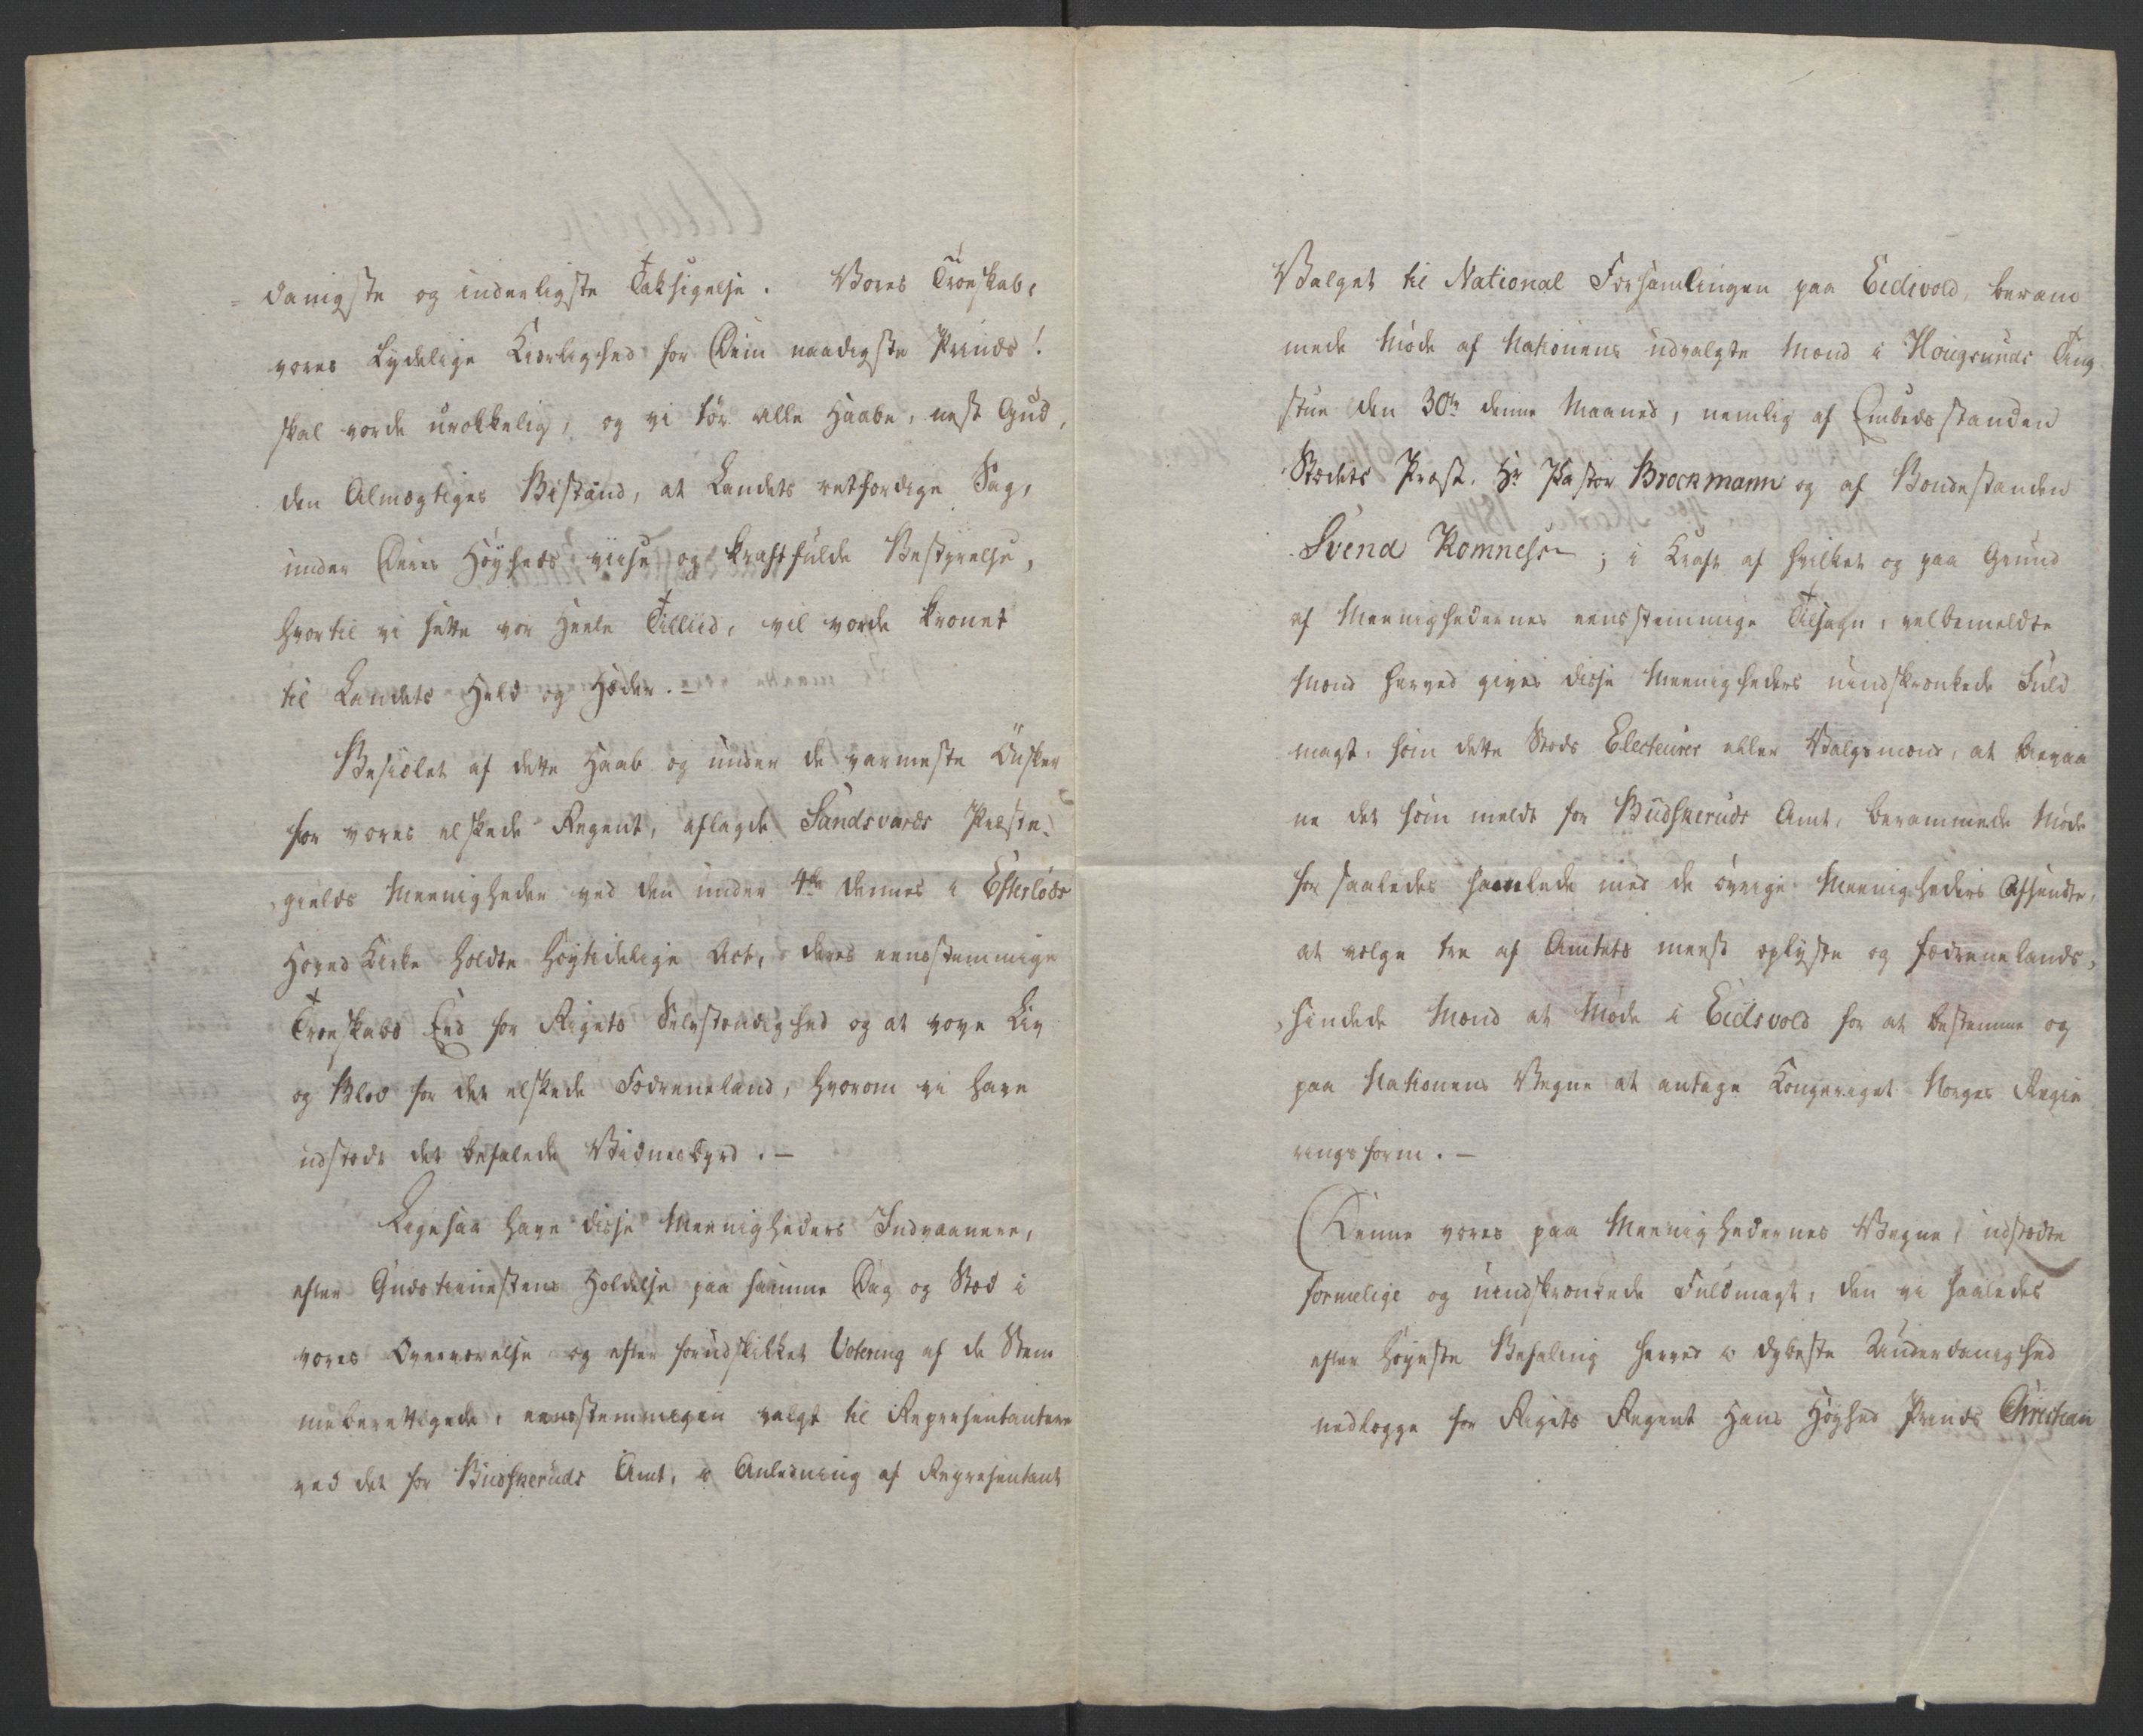 danigste og inderligste Taksigelse. Vores Troeskab,
vores Lydelige Kiærlighed for Dem naadigste Prinds!
skal vorde urokkelig, og vi tør alle Haabe, nest Gud,
den Almægtiges Bistand, at Landets retfærdige Sag,
under Deres Høyheds viise og kraftfulde Bestyrelse,
hvortil vi sætte vor heele Tilliid, vil vorde kronet
til Landets Held og Hæder. –
Besiælet af dette Haab og under de varmeste Ønsker
for vores elskede Regent, aflagde Sandsværds Præste-
gields Meenigheder ved den under 4de dennes i Efterløds
Hoved Kirke holdte høytidelige Act, deres eensstemmige
Troeskabs Eed for Rigets Selvstændighed og at vove Liv
og Blod for det elskede Fødreneland, hvorom vi have
udstædt det befalede Vidnesbyrd. –
Ligesaa have disse Meenigheders Indvaanere,
efter Gudstienestens Holdelse paa samme Dag og Stæd i
vores Overværelse og efter forudskikket Votering af de Stem
meberettigede, eensstemmigen valgt til Repræsentantere
ved det for Budskeruds Amt, i Anledning af Repræsentant
Valget til National Forsamlingen paa Eidsvold, beram
mede Møde af Nationens udvalgte Mænd i Hougsunds Ting
stue den 30te denne Maaned, nemlig af Embedsstanden
Stædets Præst, Hr Pastor Brockmann og af Bondestanden
Svend Komnæs ; i Kraft af hvilket og paa Grund
af Meenighedernes eensstemmige Tilsagn, velbemeldte
Mænd herved gives disse Meenigheders uindskrænkede Fuld
magt, som dette Stæds Electeurer eller Valgmænd, at bievaa
ne det som meldt for Budskeruds Amt, berammede Møde
for saaledes samlede med de øvrige Meenigheders Afsendte,
at vælge tre af Amtets meest oplyste og fædrenelands-
sindede Mænd at Møde i Eidsvold for at bestemme og
paa Nationens Vegne at antage Kongeriget Norges Regie
ringsform. –
Denne vores paa Meenighedernes Vegne, udstædte
formelige og uindskrænkede Fuldmagt, den vi saaledes
efter høyeste Befaling herved i dybeste Underdanighed
nedlægge for Rigets Regent Hans Høyhed Prinds Christian